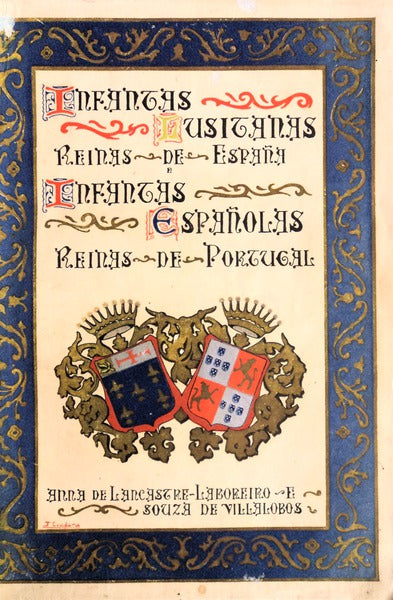 INFANTAS
LUSITANAS
REINAS DE ESPAÑA
E
INFANTAS
ESPAÑOLAS
REINAS DE PORTUGAL
ANNA DE LANCASTRE-LABOREIRO E
SOUZA DE VILLALOBOS